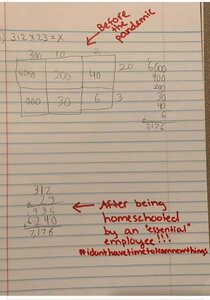 312 x 23 = x
Before
the
pandemic
300 10 2
6000 200 40 20
900 30 6 3
6000
900
200
30
40
6
7176
312
x 23
936
6240
7176
After being
homeschooled
by an "essential"
employee!!!
#idonthavetimetolearnnewthings